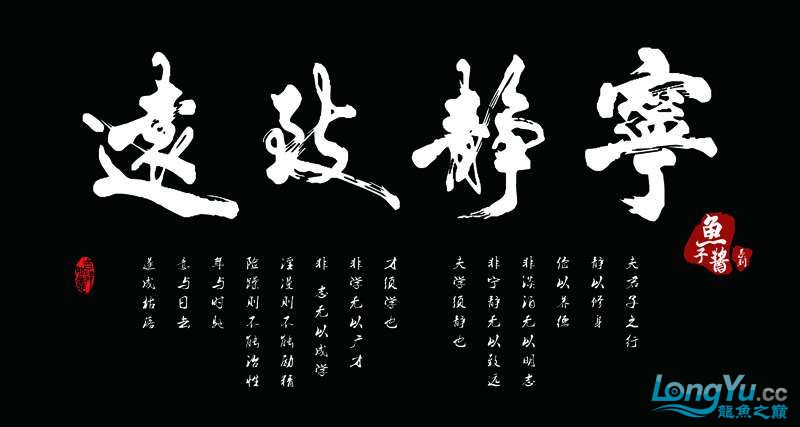 寧靜致遠
魚子醬
系列
夫君子之行
静以修身
俭以养德
非淡泊无以明志
非宁静无以致远
夫学须静也
才须学也
非学无以广才
非志无以成学
淫漫则不能励精
险躁则不能治性
年与时驰
意与日去
遂成枯落
LongYu.cc
龍魚之巔